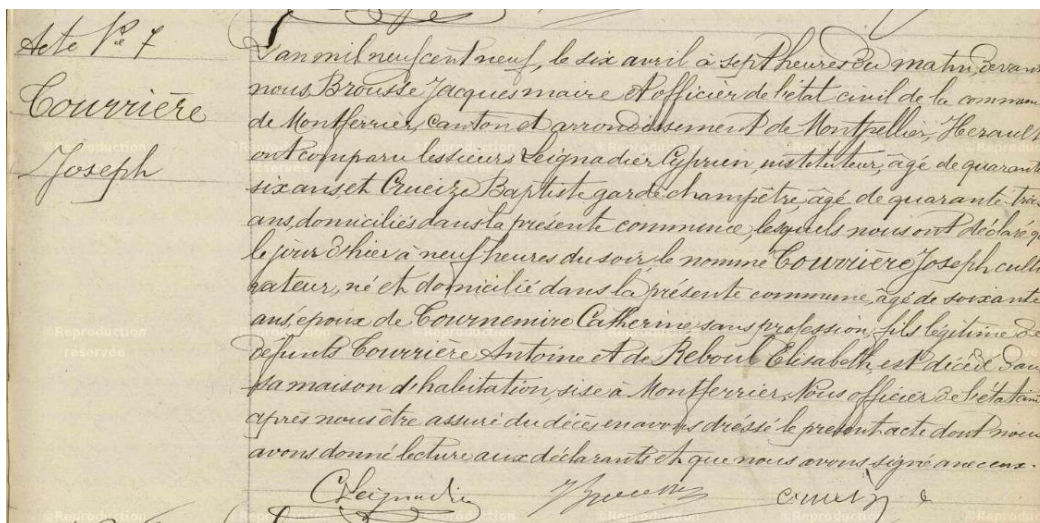 Acte N.e 7
Tourrière
Joseph
L'an mil neuf cent neuf, le six avril à sept heures du matin, devant
nous, Brousse Jacques maire et officier de l'état civil de la commune
de Montferrier, canton et arrondissement de Montpellier, Herault
ont comparu les sieurs Leignadier Cyprien, instituteur, âgé de quarante
six ans, et Crueize Baptiste garde champêtre, âgé de quarante-trois
ans, domiciliés dans la présente commune, lesquels nous ont déclaré que
le jour d'hier à neuf heures du soir le nommé Tourrière Joseph culti
vateur, né et domicilié dans la présente commune, âgé de soixante
ans, époux de Tournemire Catherine sans profession, fils légitime de
défunts Tourrière Antoine et de Reboul Elisabeth, est décédé dans
sa maison d'habitation, sise à Montferrier. Nous officier de l'état civil
après nous être assuré du décès en avons dressé le présent acte dont nous
avons donné lecture aux déclarants et que nous avons signé avec eux.
CLeignadier
©Reproduction réservée